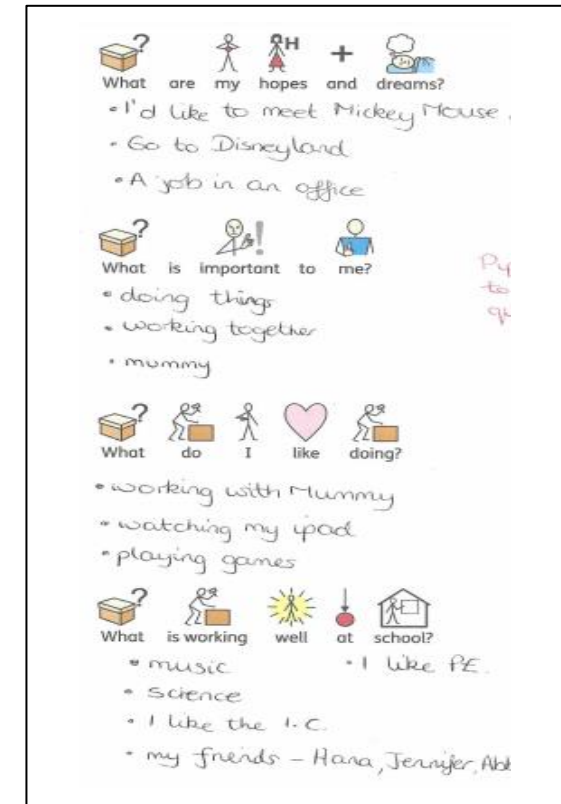 What are my hopes and dreams?
• I'd like to meet Mickey Mouse.
• Go to Disneyland
• A job in an office
What is important to me?
• doing things
• working together
• mummy
to
What do I like doing?
• working with Mummy
• watching my ipad
• playing games
What is working well at school?
• music
• I like PE.
• Science
• I like the I.C.
• my friends - Hana, Jennifer,